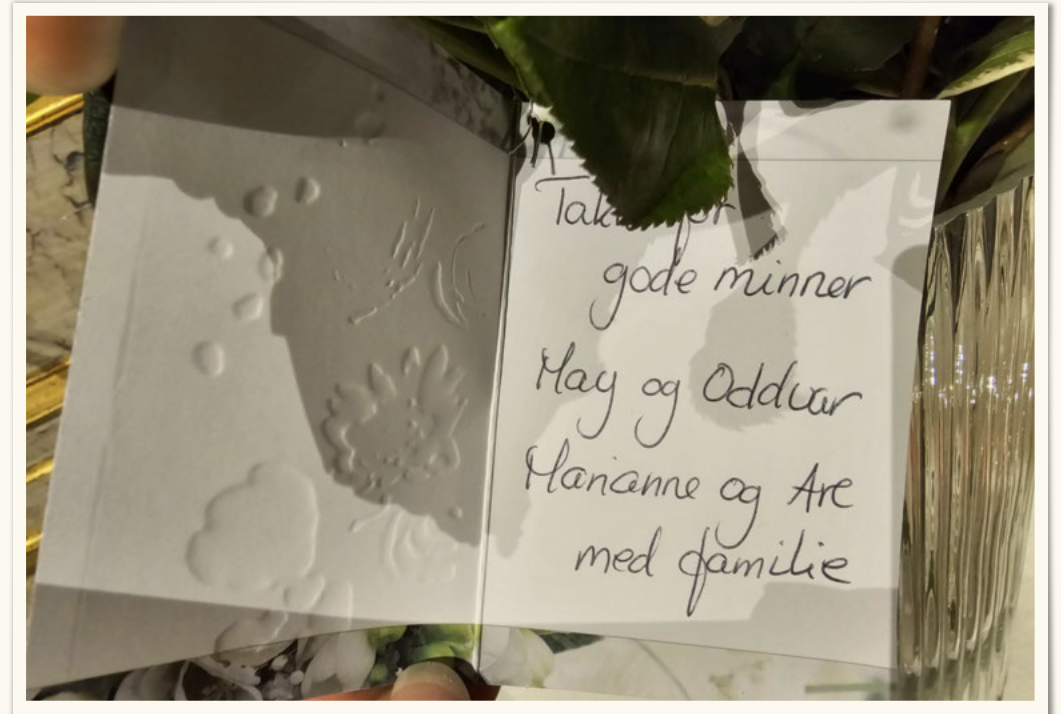 Takk for
gode minner
May og Oddvar
Marianne og Are
med familie